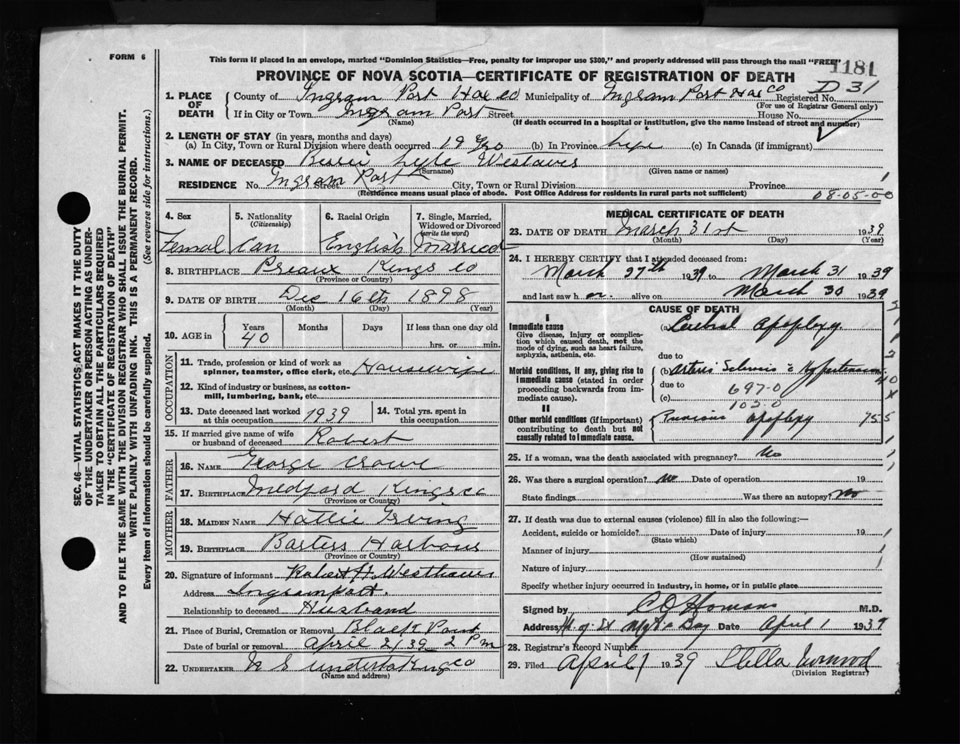 FORM 6
This form if placed in an envelope, marked "Dominion Statistics—Free, penalty for improper use $300," and properly addressed will pass through the mail "FREE"
1181
PROVINCE OF NOVA SCOTIA—CERTIFICATE OF REGISTRATION OF DEATH
D 31
1. PLACE OF DEATH
County of Ingram Port Hax co Municipality of Ingram Port Hax Co Registered No.
(For use of Registrar General only)
If in City or Town Ingram Port Street House No.
(Name) (If death occurred in a hospital or institution, give the name instead of street and number)
2. LENGTH OF STAY (in years, months and days)
(a) In City, Town or Rural Division where death occurred 19 yrs (b) In Province Life (c) In Canada (if immigrant)
3. NAME OF DECEASED Bessie Lyle Westaver
(Surname) (Given name or names)
RESIDENCE No. Ingram Port Street City, Town or Rural Division Province 1
(Residence means usual place of abode. Post Office Address for residents in rural parts not sufficient)
08-05-00
SEC. 46—VITAL STATISTICS ACT MAKES IT THE DUTY
OF THE UNDERTAKER OR PERSON ACTING AS UNDER-
TAKER TO OBTAIN ALL THE PARTICULARS REQUIRED
IN THE "CERTIFICATE OF REGISTRATION OF DEATH"
AND TO FILE THE SAME WITH THE DIVISION REGISTRAR WHO SHALL ISSUE THE BURIAL PERMIT.
WRITE PLAINLY WITH UNFADING INK. THIS IS A PERMANENT RECORD.
Every item of information should be carefully supplied. (See reverse side for instructions.)
4. Sex
Femal
5. Nationality
(Citizenship)
Can
6. Racial Origin
English
7. Single, Married,
Widowed or Divorced
(write the word)
Married
8. BIRTHPLACE Kings co
(Province or Country)
9. DATE OF BIRTH Dec 16th 1898
(Month) (Day) (Year)
10. AGE in
Years Months Days If less than one day old
40 hrs. or min.
OCCUPATION
11. Trade, profession or kind of work as
spinner, teamster, office clerk, etc. Housewife
12. Kind of industry or business, as cotton-
mill, lumbering, bank, etc.
13. Date deceased last worked
at this occupation 1939
14. Total yrs. spent in
this occupation
15. If married give name of wife
or husband of deceased Robert
FATHER
16. NAME George Crowe
17. BIRTHPLACE Medford Kings co
(Province or Country)
MOTHER
18. MAIDEN NAME Hattie Irving
19. BIRTHPLACE Harbour
(Province or Country)
20. Signature of informant Robert H Westhaver
Address Ingramport.
Relationship to deceased Husband
21. Place of Burial, Cremation or Removal Black Point
Date of burial or removal April 2/39 2 Pm
22. UNDERTAKER N S Undertaking co
(Name and address)
MEDICAL CERTIFICATE OF DEATH
23. DATE OF DEATH March 31st 1939
(Month) (Day) (Year)
24. I HEREBY CERTIFY that I attended deceased from:
March 27th 1939 to March 31 1939
and last saw h er alive on March 30 1939
CAUSE OF DEATH
I
Immediate cause
Give disease, injury or complica-
tion which caused death, not the
mode of dying, such as heart failure,
asphyxia, asthenia, etc.
(a) Cerebral apoplexy
due to
Morbid conditions, if any, giving rise to
immediate cause (stated in order
proceeding backwards from im-
mediate cause).
(b) Arterio Sclerosis & Hypertension
due to 697-0
(c) 102.0
II
Other morbid conditions (if important)
contributing to death but not
causally related to immediate cause.
Previous apoplexy
25. If a woman, was the death associated with pregnancy? No
26. Was there a surgical operation? No Date of operation 19
State findings Was there an autopsy? No
27. If death was due to external causes (violence) fill in also the following:—
Accident, suicide or homicide? Date of injury 19
(State which)
Manner of injury
(How sustained)
Nature of injury
Specify whether injury occurred in industry, in home, or in public place
Signed by M.D.
Address Bay Date April 1 1939
28. Registrar's Record Number
29. Filed April 1 1939 Stella
(Division Registrar)